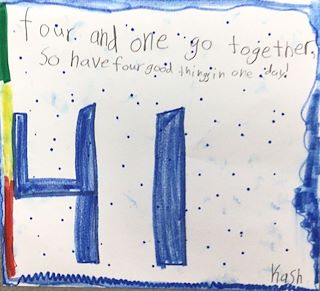 four and one go together.
So have four good thing in one day!
41
Kash